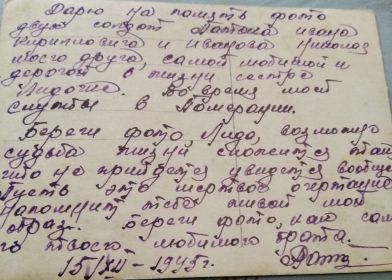 Дарю на память фото
двух солдат Латона Ивана
Кирилловича и Иванова Николая
моего друга, самой любимой и
дорогой в жизни сестре
Лидочке. Во время моей
службы в Померании.
Береги фото Лида, возможно
судьба жизни сложится так
что не прийдется увидется вообще
Пусть это мертвое очертание
напомнит тебе живой мой
образ. Береги фото, как само
го твоего любимого брата.
15/XII-1945г.